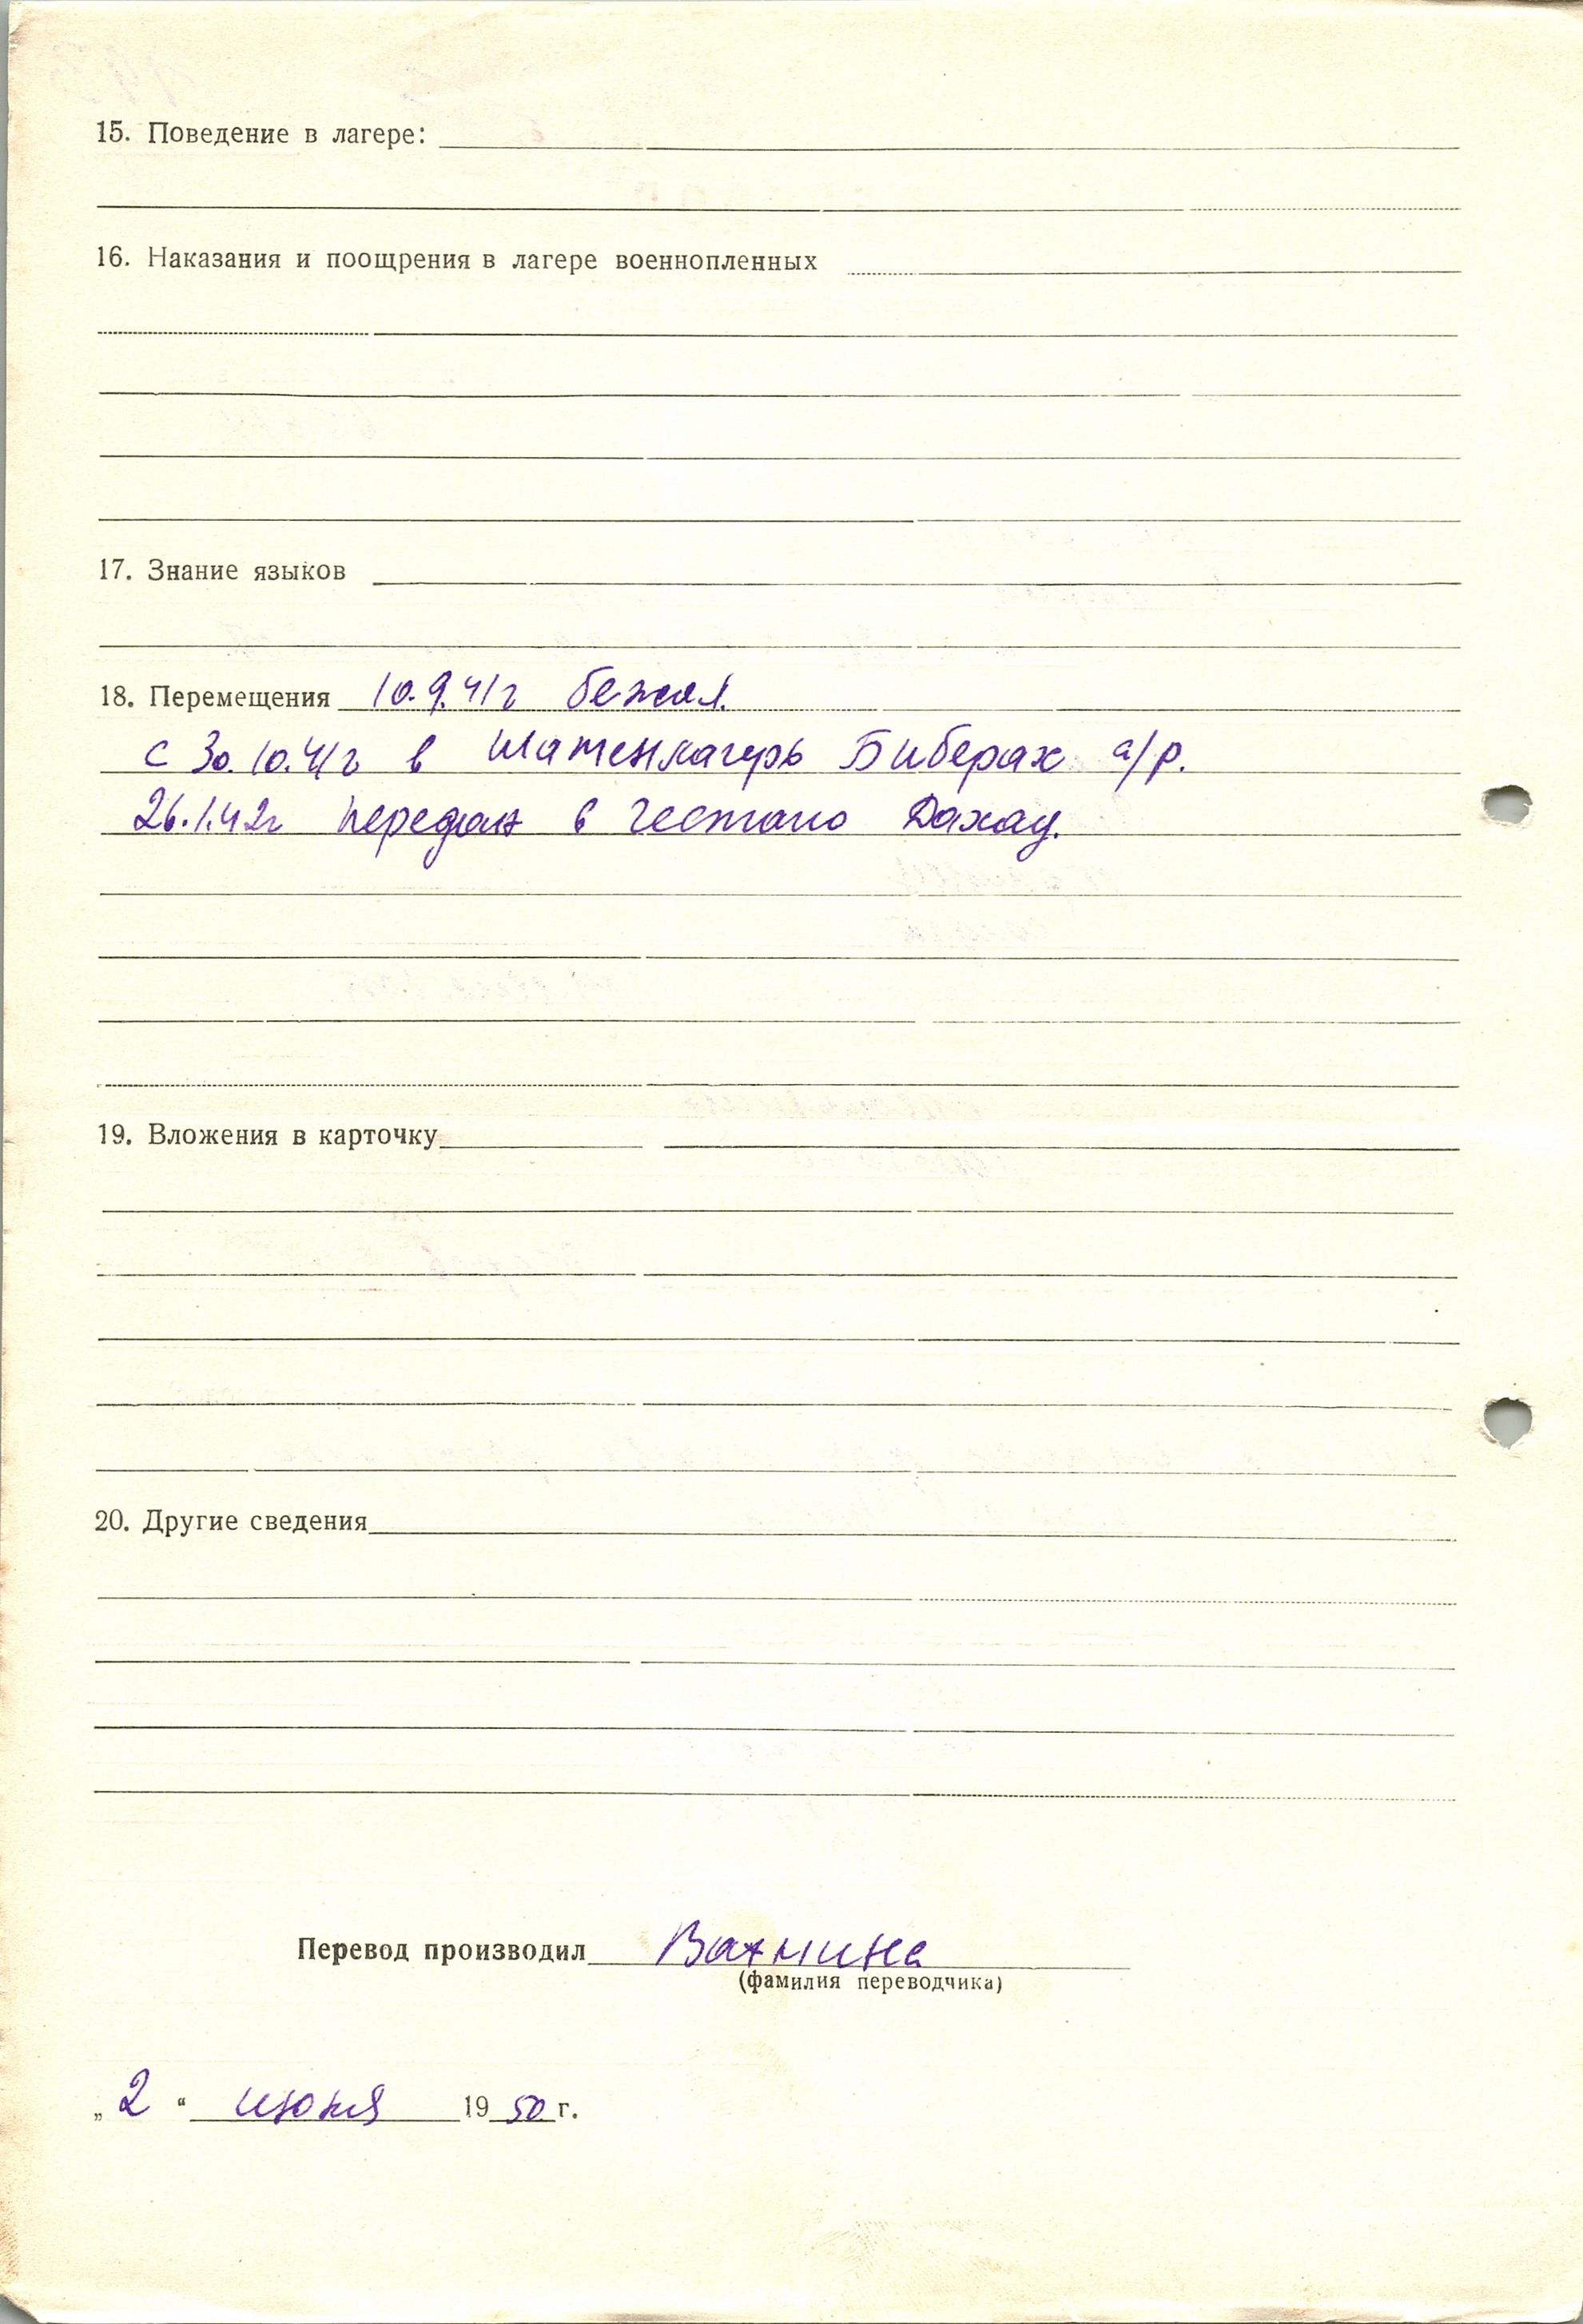 15. Поведение в лагере:
16. Наказания и поощрения в лагере военнопленных
17. Знание языков
18. Перемещения 10.9.41г бежал.
с 30.10.41г в Шатенлагерь Биберах а/р.
26.1.42г передан в гестапо Дахау.
19. Вложения в карточку
20. Другие сведения
Перевод производил Вахмина
(фамилия переводчика)
„ 2 “ июня 19 50 г.